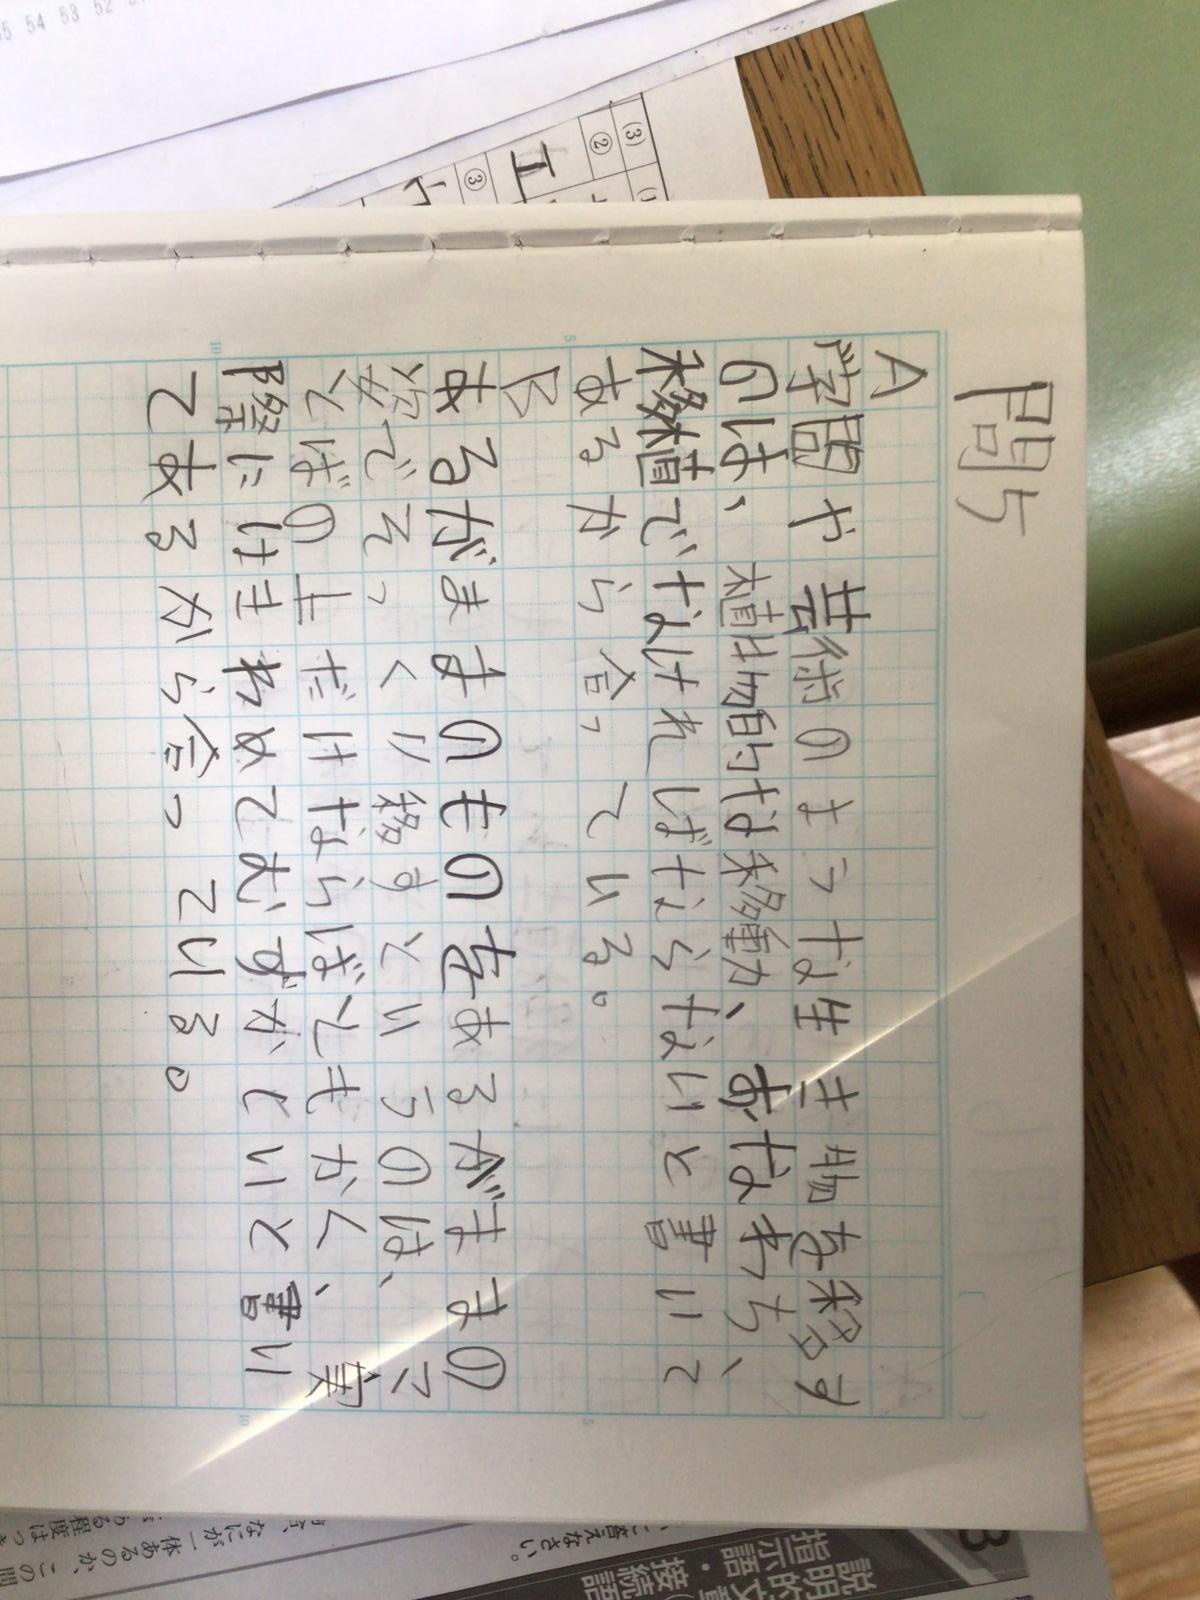 問5
A
学問や芸術のような生き物を移す
のは、植物的な移動、すなわち、
移植でなければならないと書いて
あるから合っている。
B
あるがままのものをあるがままの
姿でそっくり移すというのは、こ
とばの上だけならばともかく、実
際にはきわめてむずかしいと書い
てあるから合っている。
55 54 53 52
(3)
②
エ
③
説明的文章
指示語・接続語
答えなさい。
なにが一体あるのか、この問
ある程度はっき